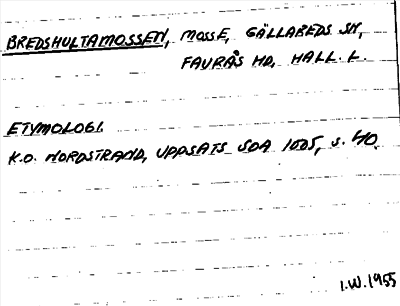 BREDSHULTAMOSSEN, MOSSE, GÄLLAREDS SN,
FAURÅS HD, HALL. L.
ETYMOLOGI.
K.O. NORDSTRAND, UPPSATS SOA 1005, S. 40.
I.W. 1955